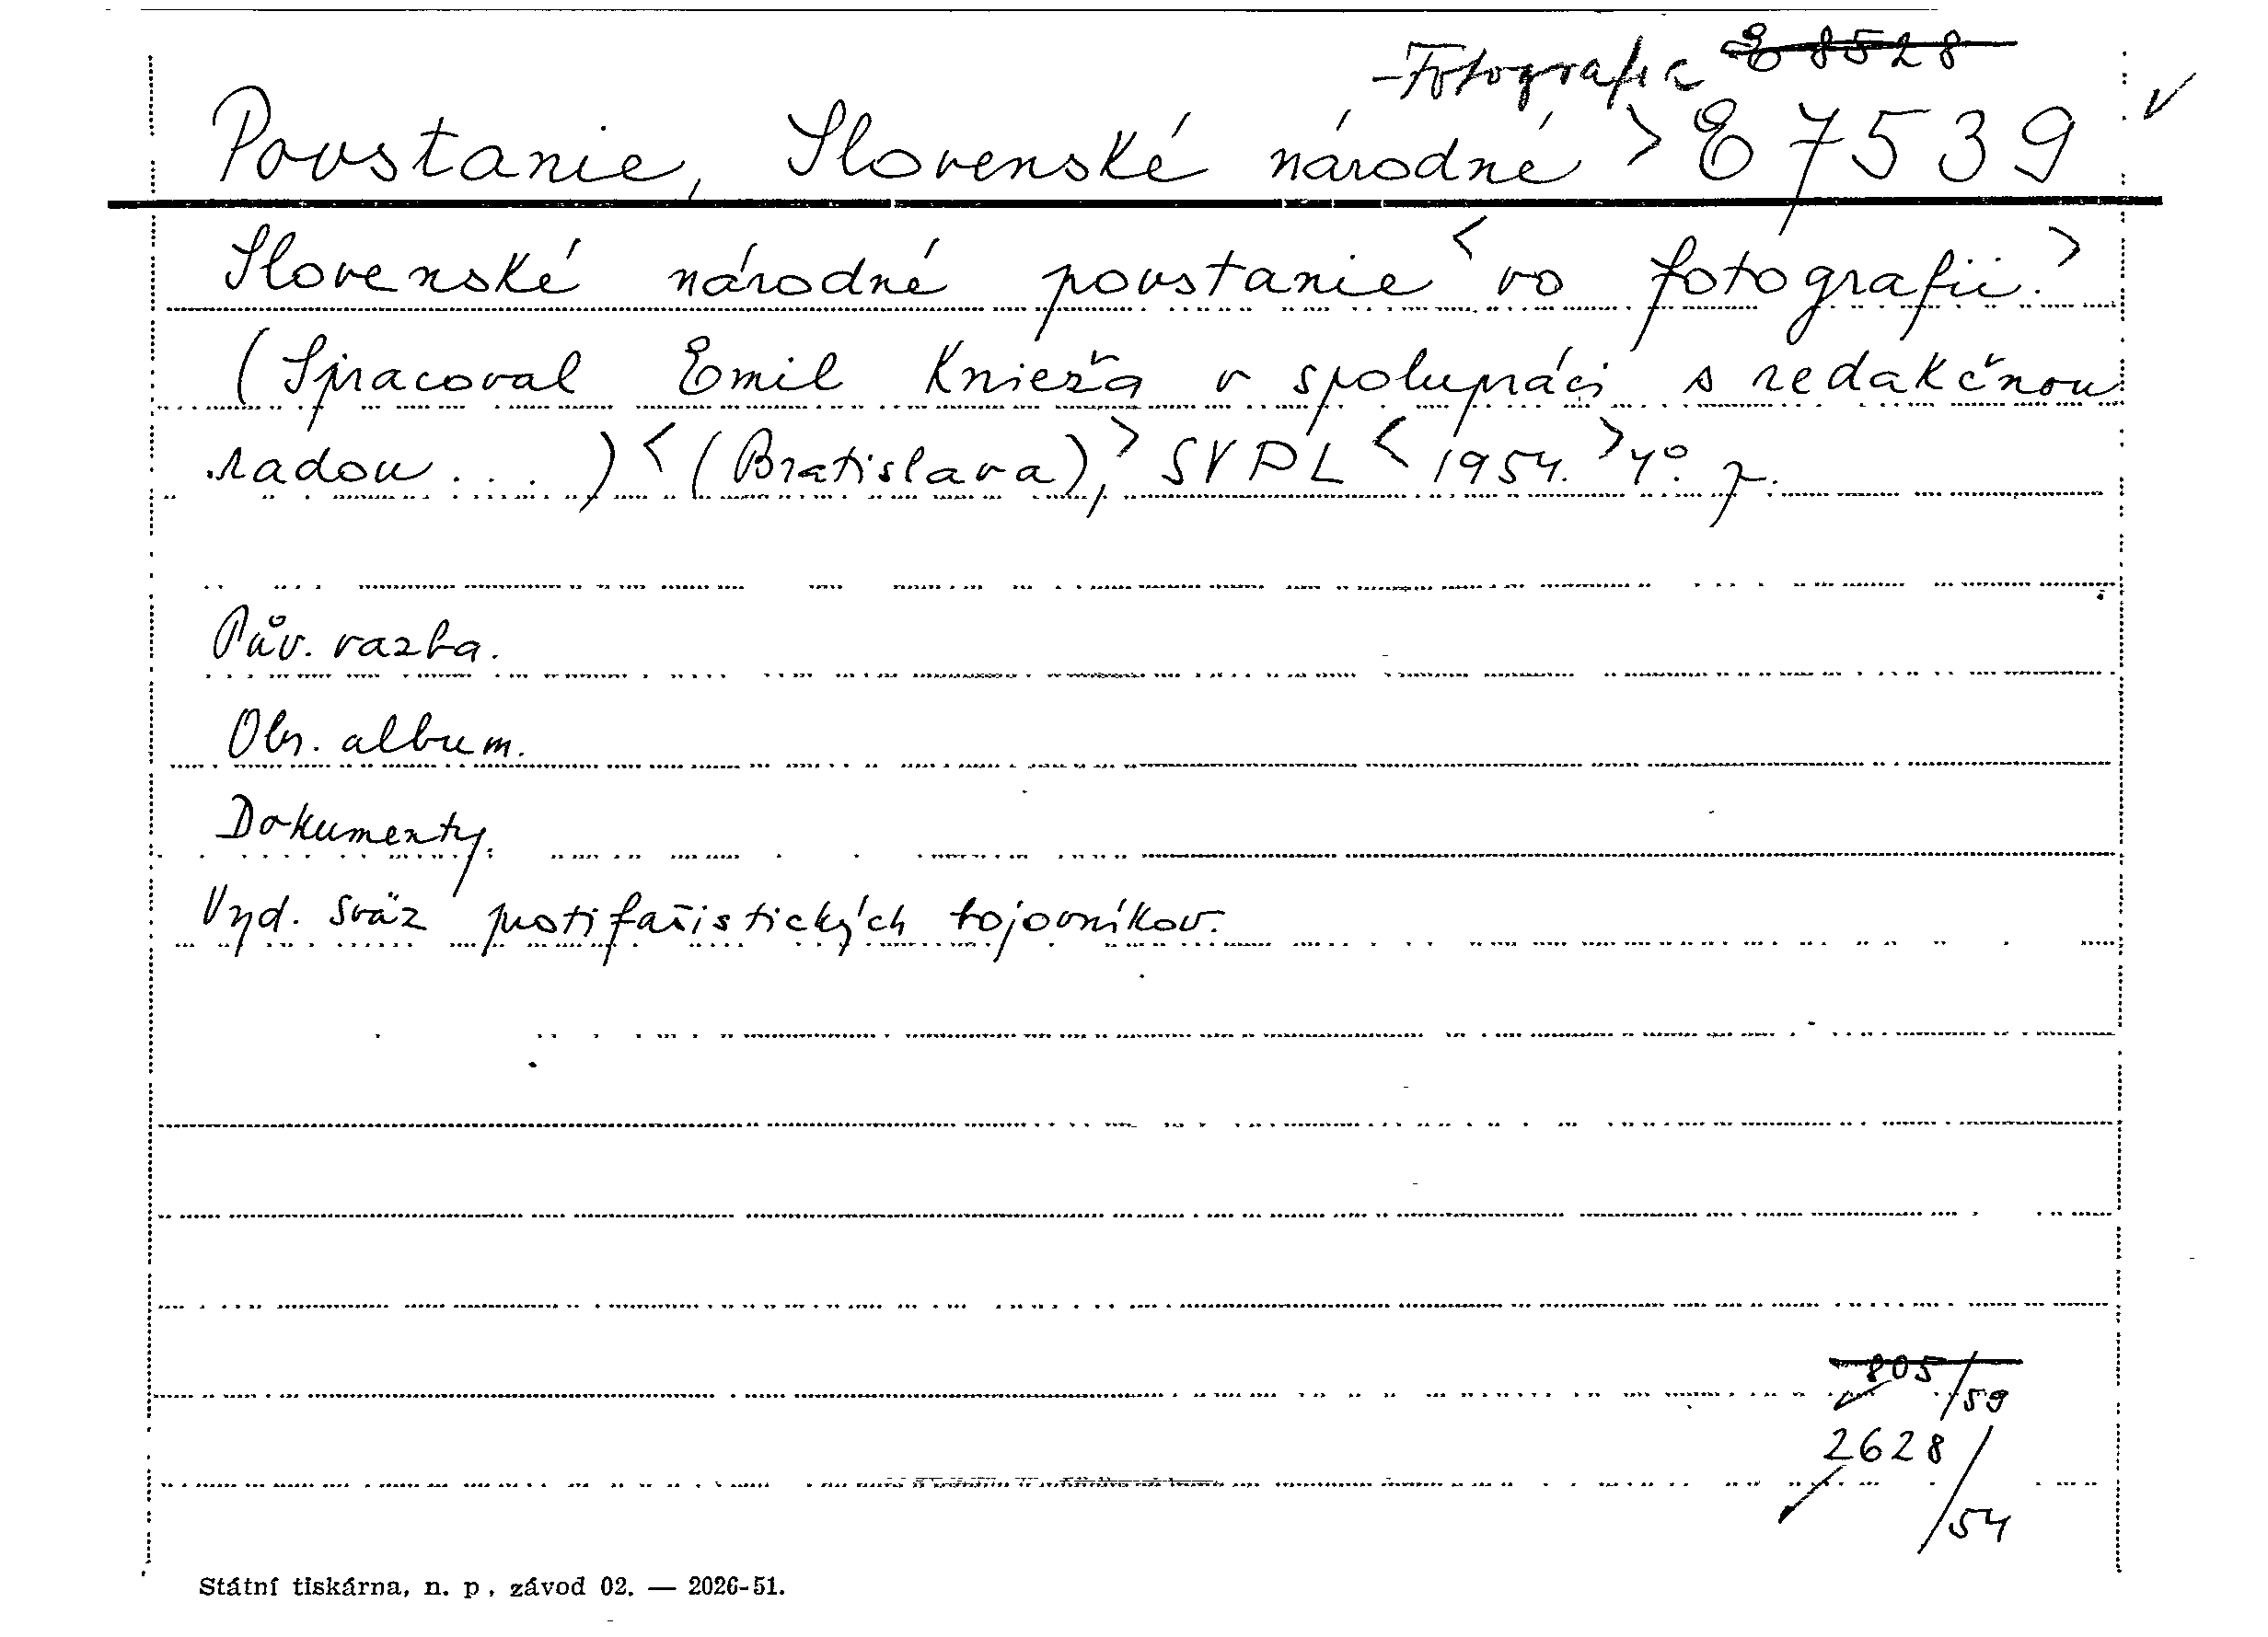 -Fotografie E 8528
Povstanie, Slovenské národné > E 7539
Slovenské národné povstanie < vo fotografii. >
(Spracoval Emil Knieža v spolupráci s redakčnou
radou . . . ) < (Bratislava), > SVPL < 1954. > 4°. p.
Pův. vazba.
Obr. album.
Dokumenty.
Vyd. Sväz protifašistických bojovníkov.
805/59
2628/54
Státní tiskárna, n. p., závod 02. — 2026-51.